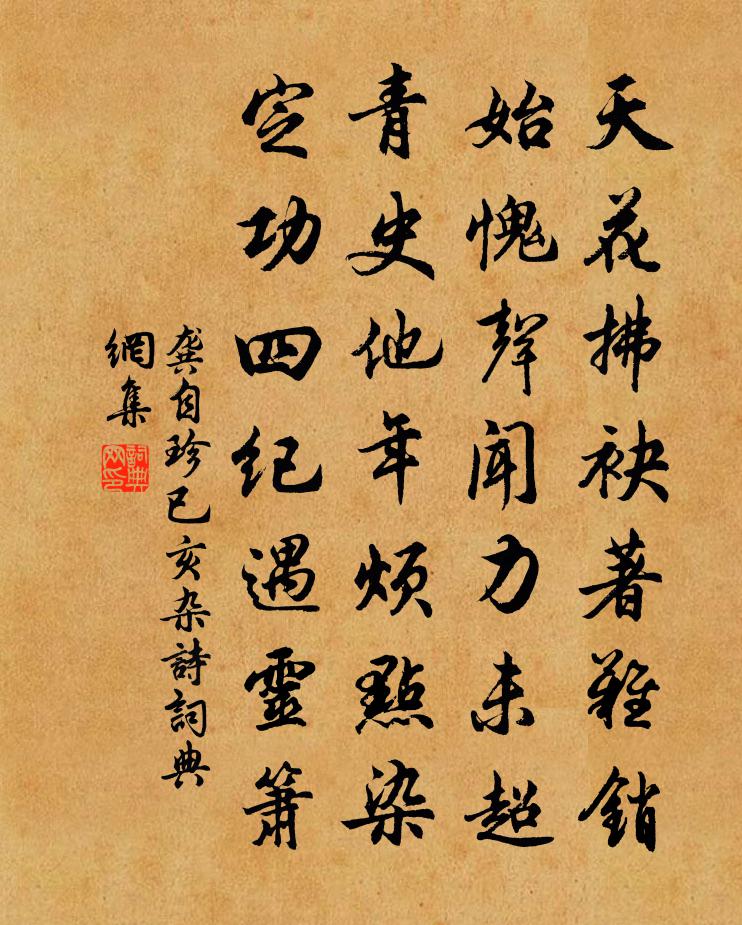 天花拂袂著難銷
始愧聲聞力未超
青史他年煩點染
定功四紀遇靈簫
龔自珍己亥杂詩詞典
網集
詞典
网印